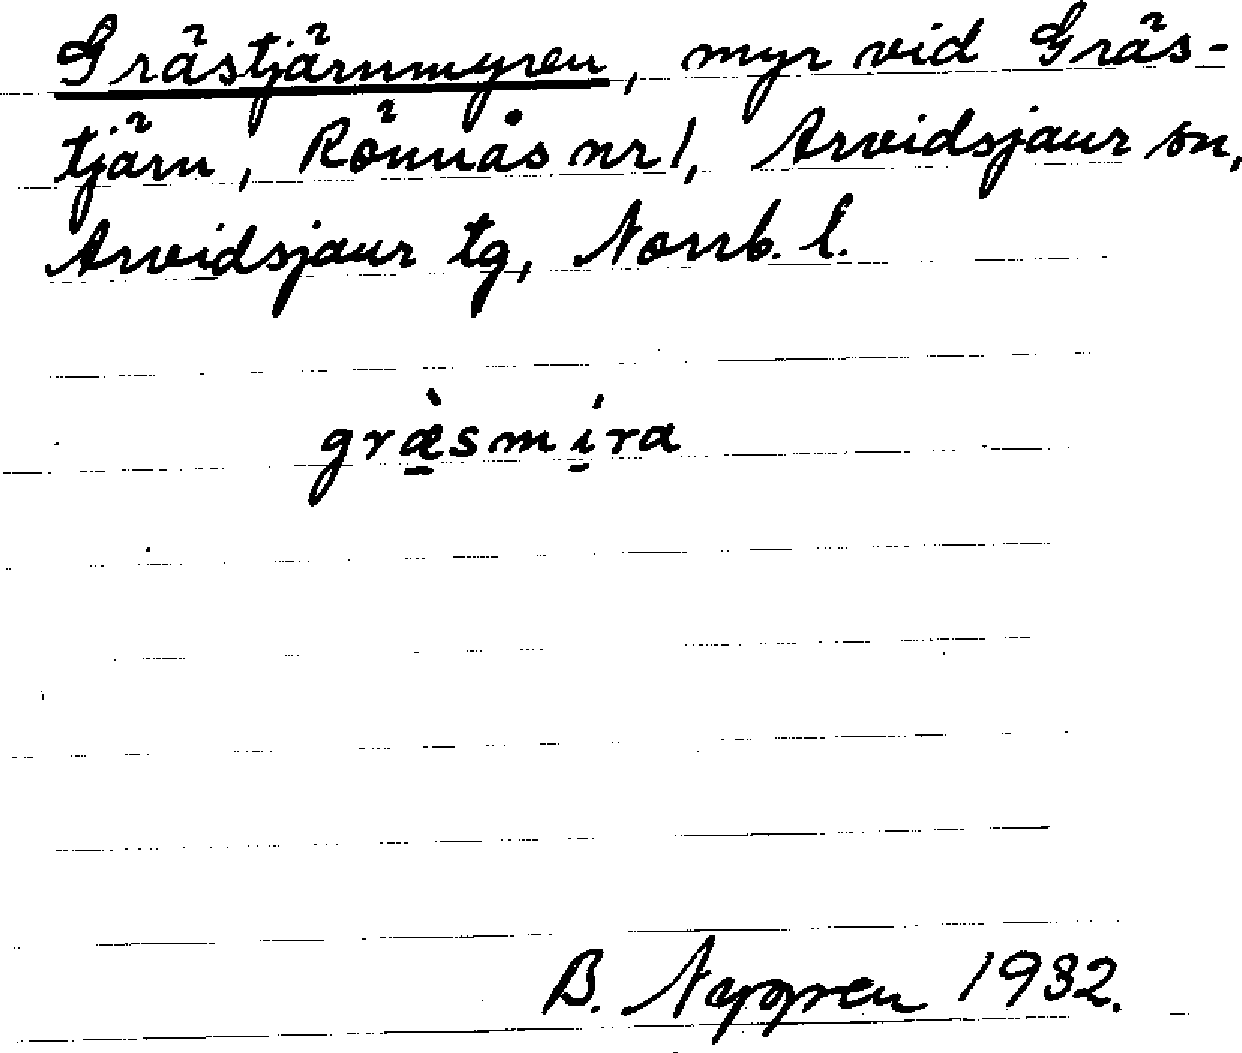 Grästjärnmyren, myr vid Gräs-
tjärn, Rönnås nr 1, Arvidsjaur sn,
Arvidsjaur tg, Norrb. l.
græ̱̀smí̱ra
B. Nygren 1932.